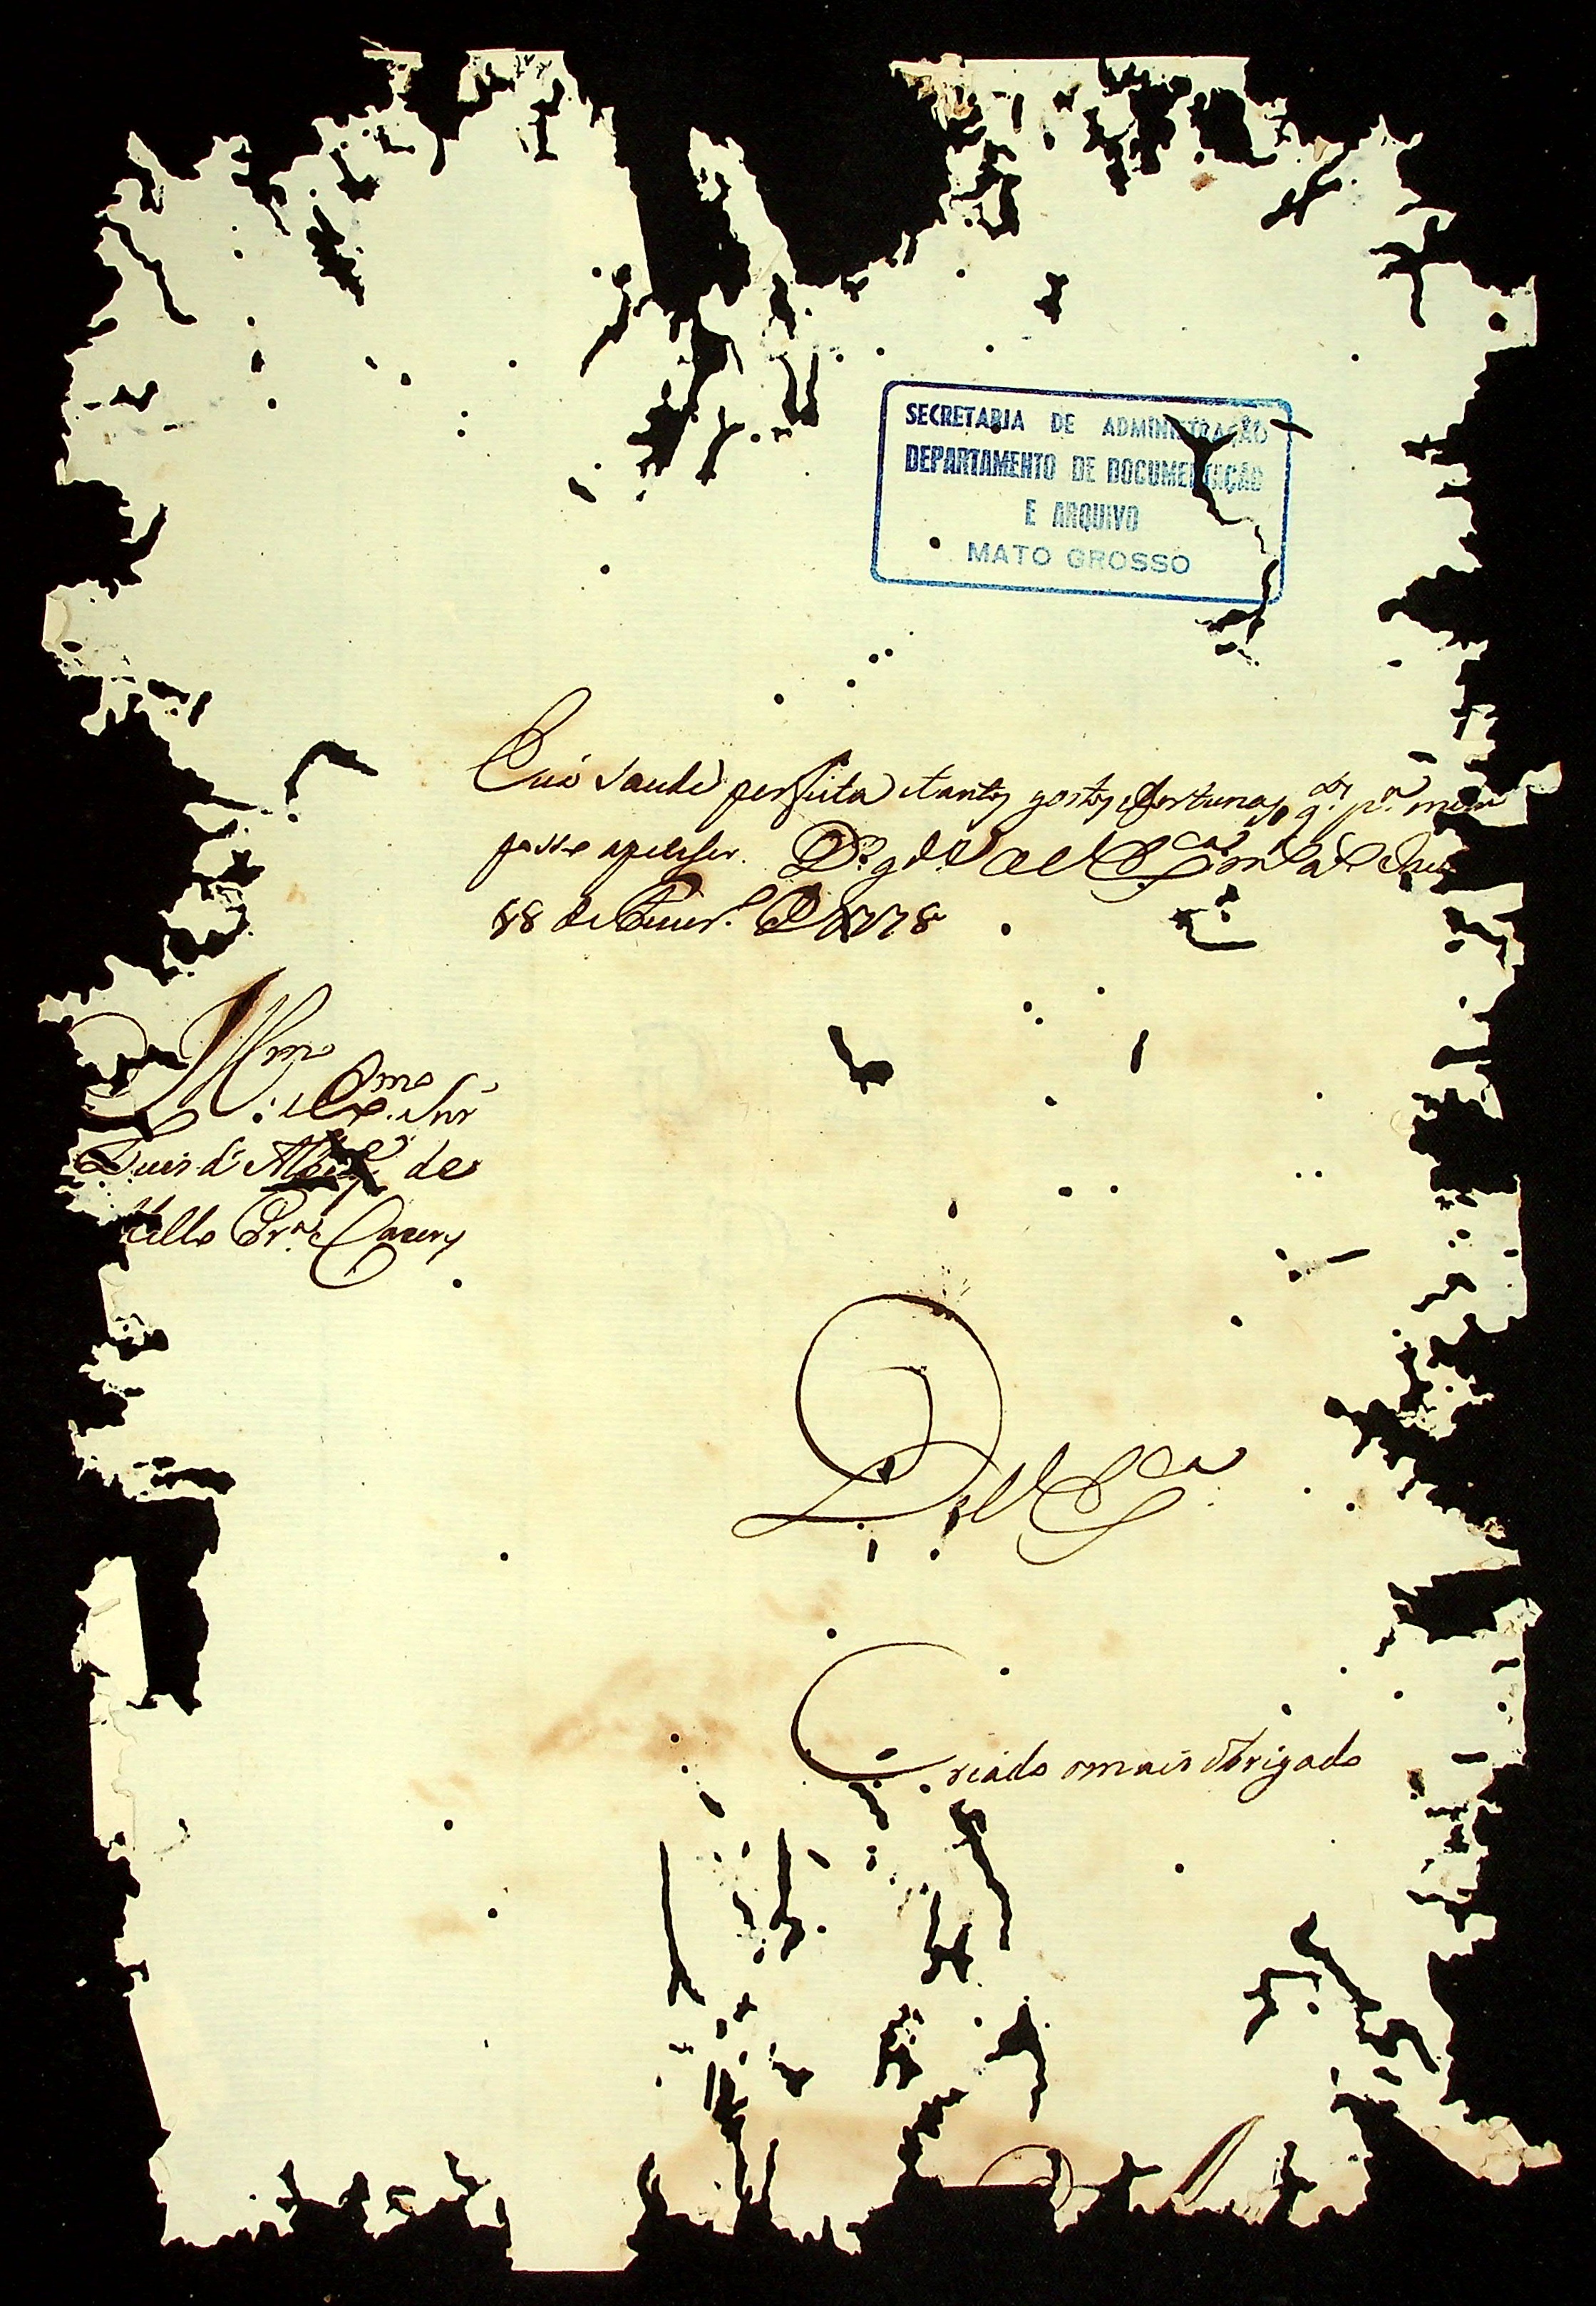 SECRETARIA DE ADMINISTRAÇÃO
DEPARTAMENTO DE DOCUMENTAÇÃO
E ARQUIVO
MATO GROSSO
saude perfeita e tantos gostos e fortunas q. p.ª mim
posso apeteser. D.s g.de a V Ex.ca m.
18 de 1778
Ill.mo e Ex.mo Snr
Luis d' Albuq.e de
Mello Pr.ª e Caceres
De V Ex.ca
Criado o mais obrigado